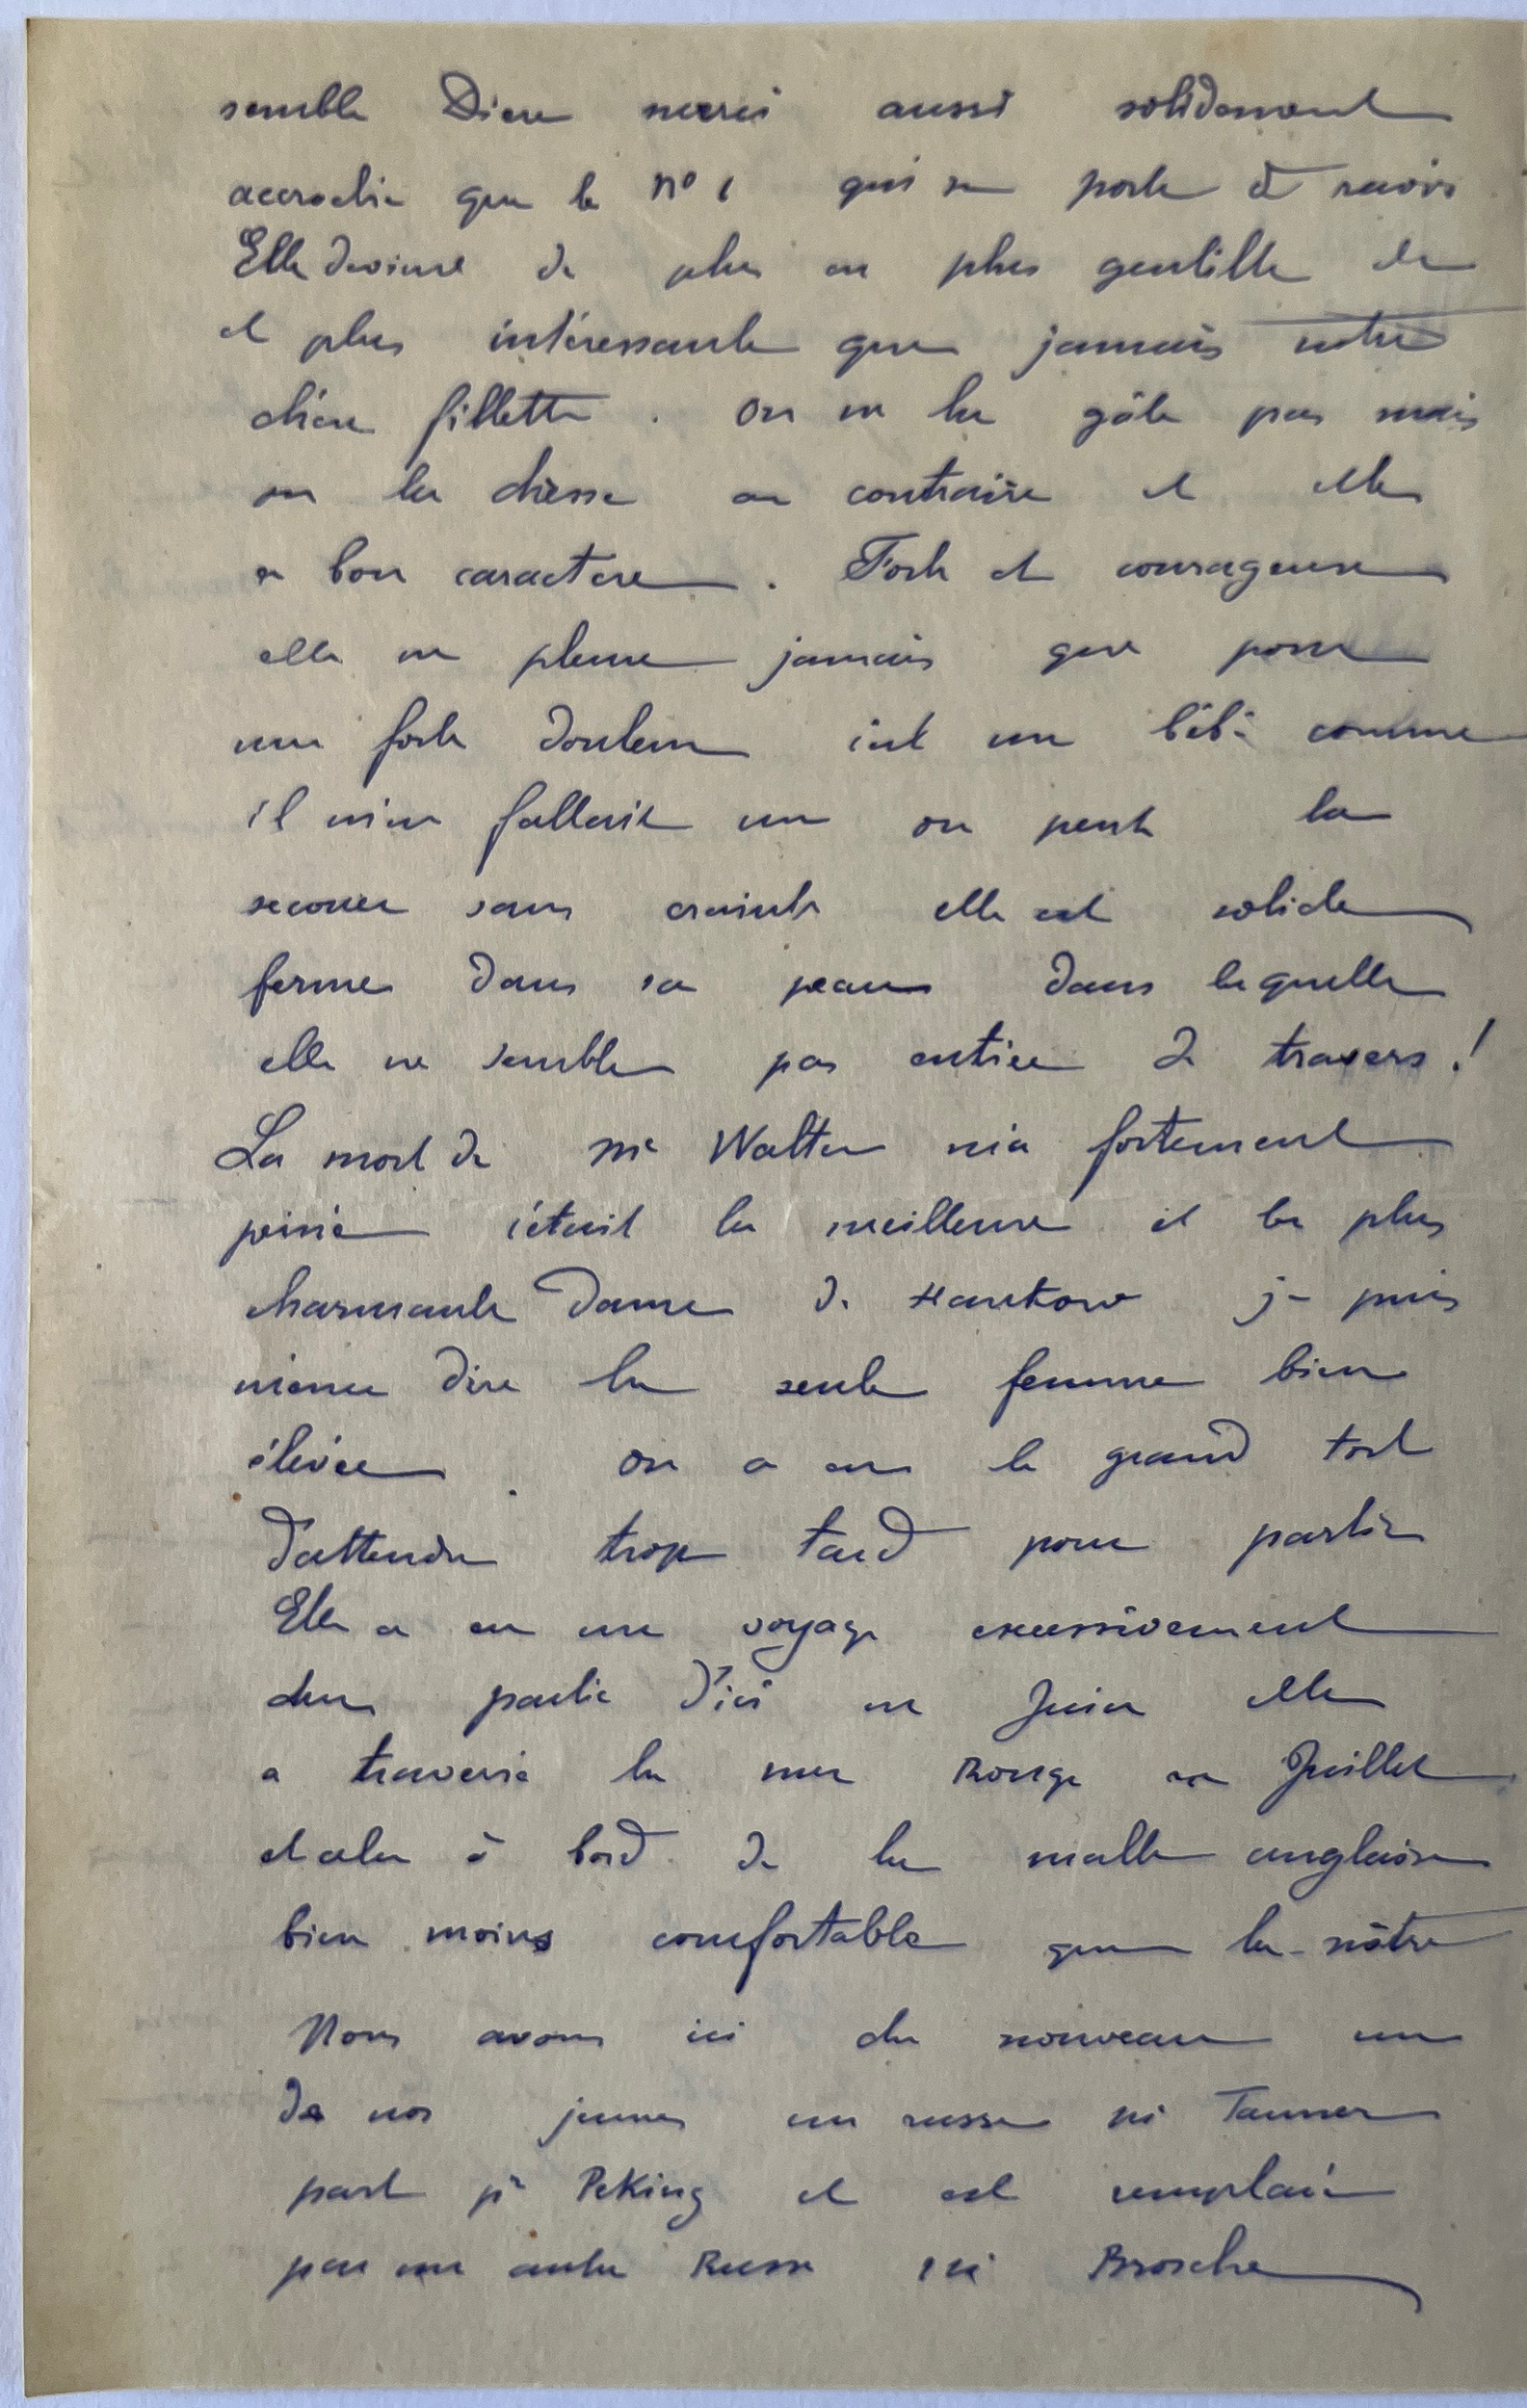 semble Dieu merci aussi solidement
accroché que le n° 1 qui se porte à ravir
Elle devient de plus en plus gentille
et plus intéressante que jamais notre
chère fillette. On ne la gâte pas mais
on la dresse au contraire et elle
a bon caractere. Forte et courageuse
elle ne pleure jamais que pour
une forte douleur c'est un bébé comme
il m'en fallait un on peut la
secouer sans crainte elle est solide
ferme dans sa peau dans laquelle
elle ne semble pas entrée de travers!
La mort de Me Walter m'a fortement
peiné c'était la meilleure et la plus
charmante Dame de Hankow je puis
même dire la seule femme bien
élevée. On a eu le grand tort
d'attendre trop tard pour partir
Elle a eu un voyage excessivement
dur partie d'ici en Juin elle
a traversé la mer Rouge en Juillet
et cela à bord de la malle anglaise
bien moins comfortable que la nôtre
Nous avons ici du nouveau un
de nos jeunes un russe Mr Tanner
part pr Peking et est remplacé
par un autre Russe Mr Brosche